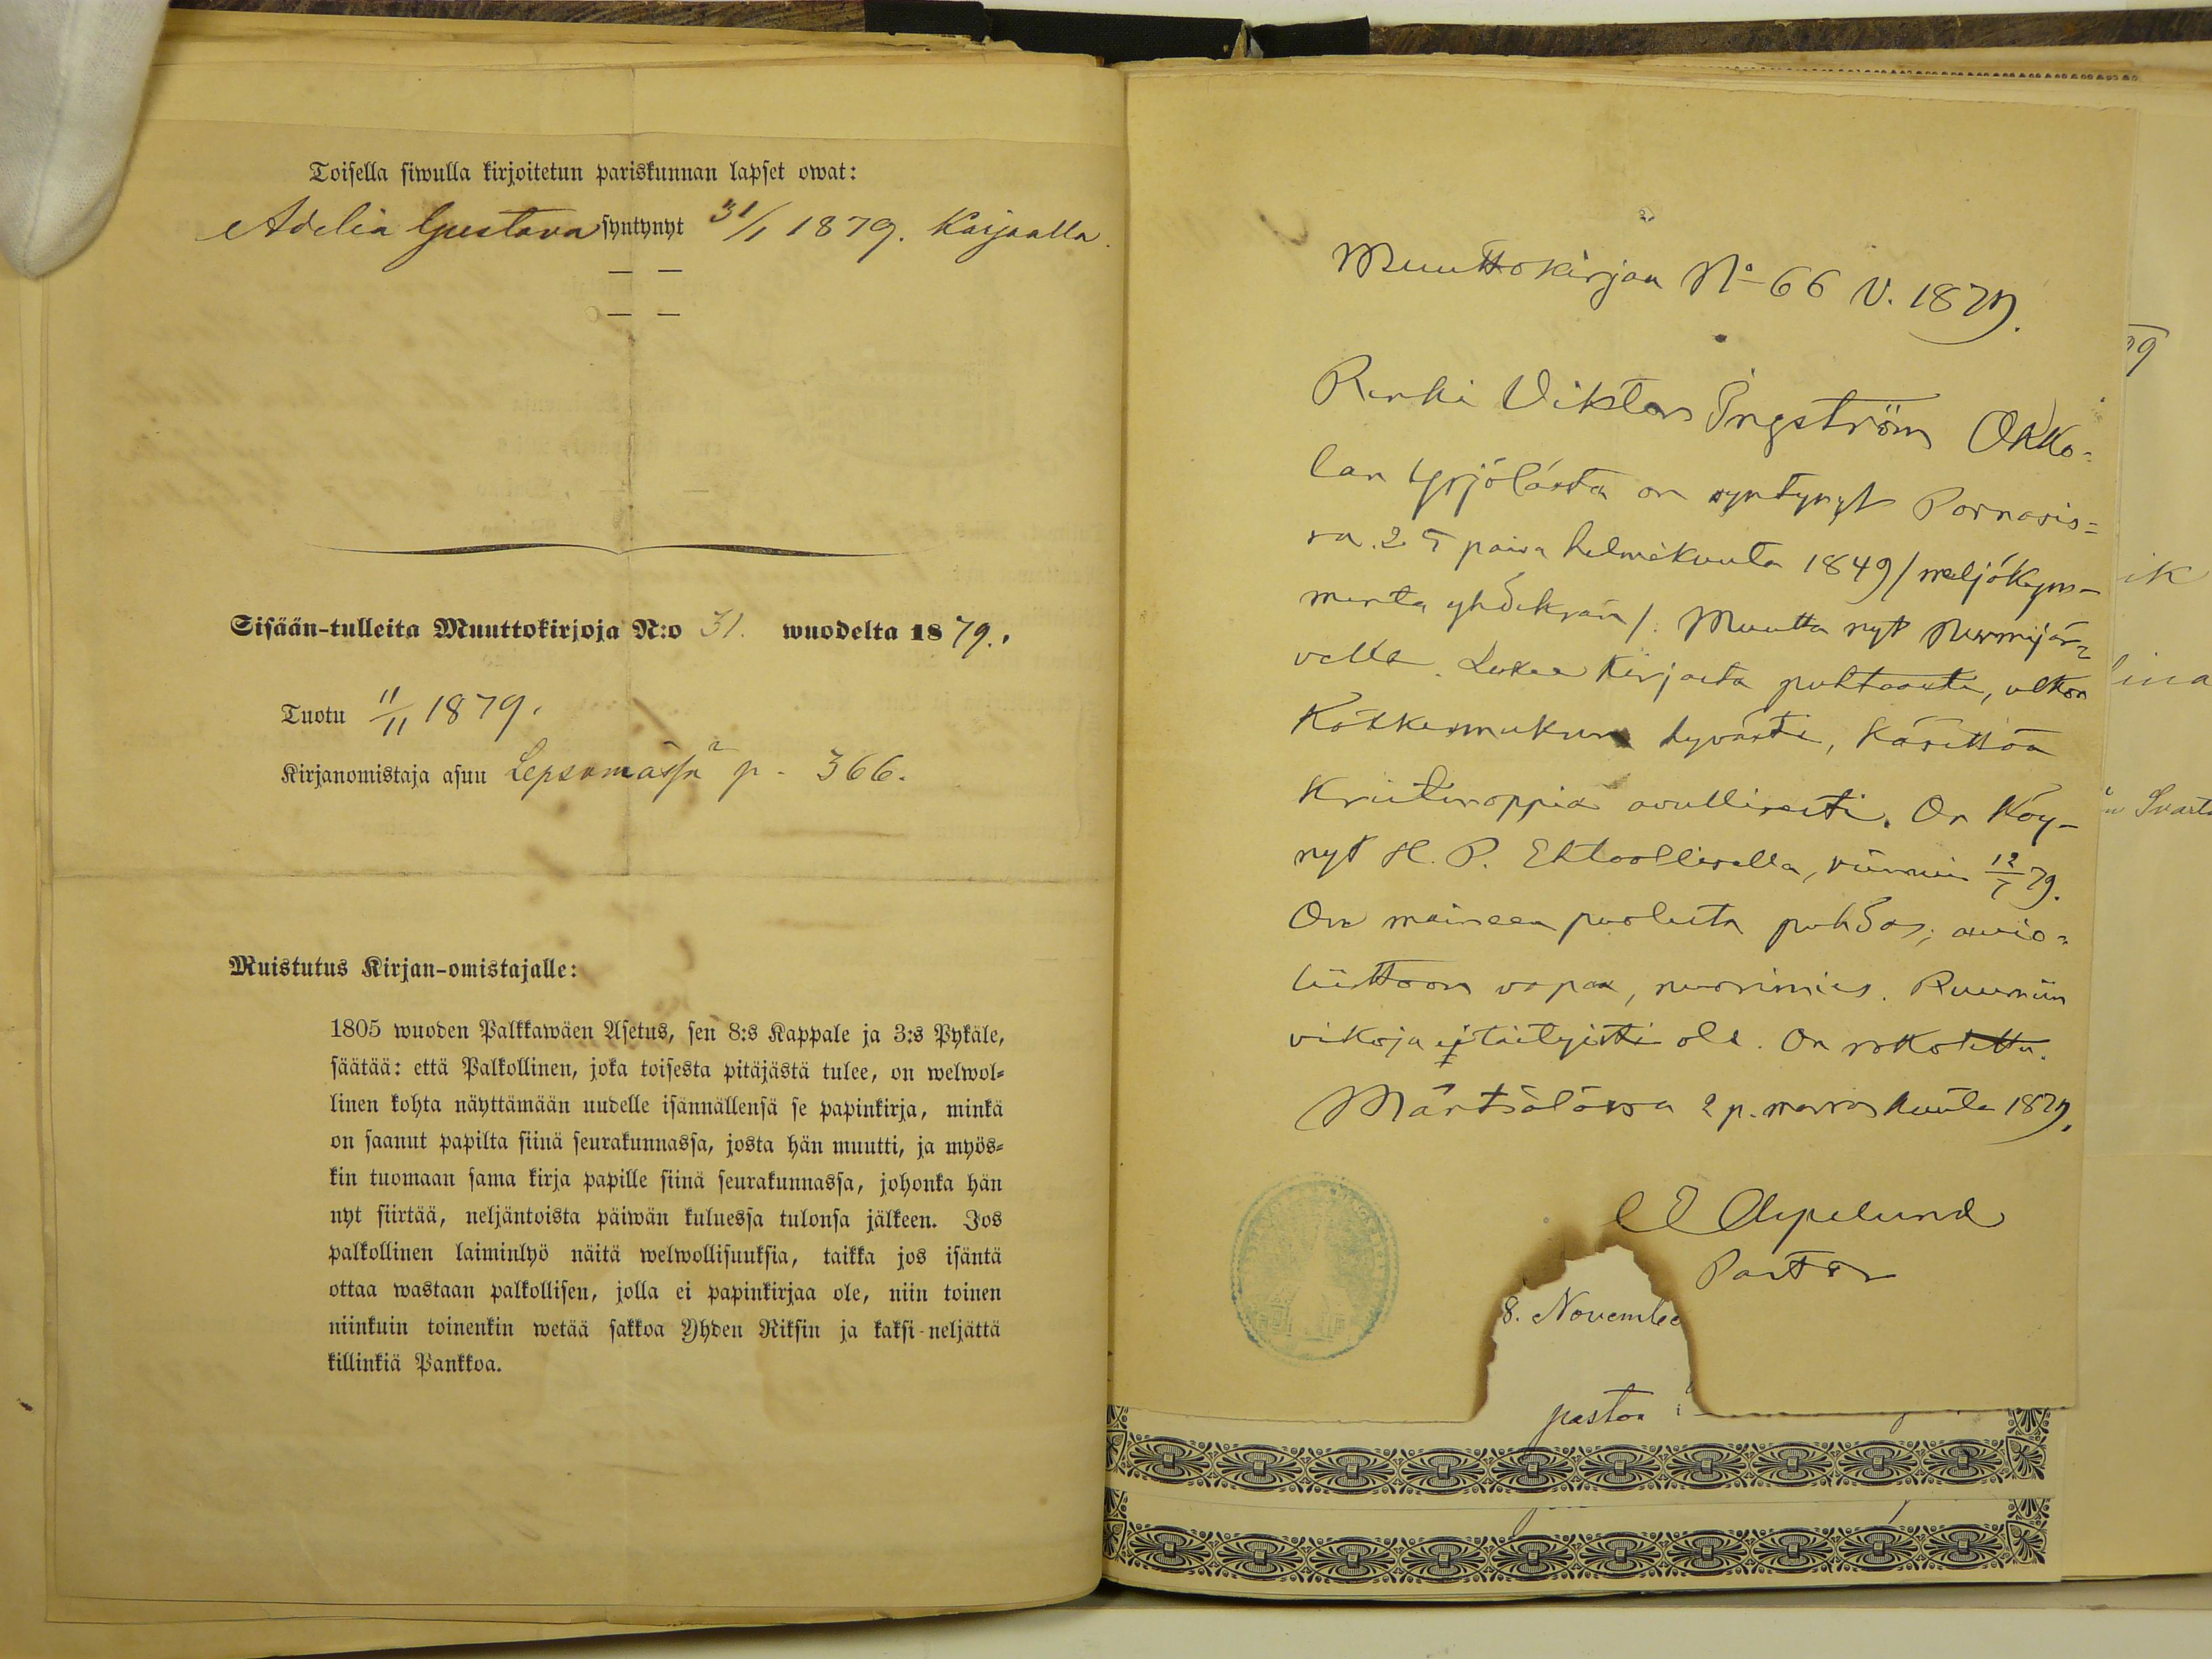 Toisella siwulla kirjoitetun pariskunnan lapset owat:
Adelia Gustava syntynyt 31/1 1879. Karjaalla.
— —
— —
Sisään-tulleita Muuttokirjoja N:o 31. wuodelta 1879.
Tuotu 11/11 1879.
Kirjanomistaja asuu Lepsomässä p. 366.
Muistutus Kirjan-omistajalle:
1805 wuoden Palkkawäen Asetus, sen 8:s Kappale ja 3:s Pykäle,
säätää: että Palkollinen, joka toisesta pitäjästä tulee, on welwol-
linen kohta näyttämään uudelle isännällensä se papinkirja, minkä
on saanut papilta siinä seurakunnassa, josta hän muutti, ja myös-
kin tuomaan sama kirja papille siinä seurakunnassa, johonka hän
nyt siirtää, neljäntoista päiwän kuluessa tulonsa jälkeen. Jos
palkollinen laiminlyö näitä welwollisuuksia, taikka jos isäntä
ottaa wastaan palkollisen, jolla ei papinkirjaa ole, niin toinen
niinkuin toinenkin wetää sakkoa Yhden Riksin ja kaksi-neljättä
killinkiä Pankkoa.
Muuttokirjaa No 66 V. 1879.
Renki Viktor Ingström Okko-
lan Yrjölästä on syntynyt Pornais-
sa 25 päivä helmikuuta 1849 / neljäkym-
mentä yhdeksän /. Muutta nyt Nurmijär-
velle. Lukee kirjasta puhtaasti, ulkoa
kohtuullisesti hyvästi, käsittää
kristinoppia avullisesti. On käy-
nyt H. P. Ehtoollisella, viimein 12/7 79.
On maineen puolesta puhdas; avio-
liittoon vapaa, nuorimies. Ruumiin
vikoja ei tiettyjätti ole. On rokotettu.
Mäntsälässä 2 p. marraskuuta 1879.
Pastor
8. Novembe
pastor